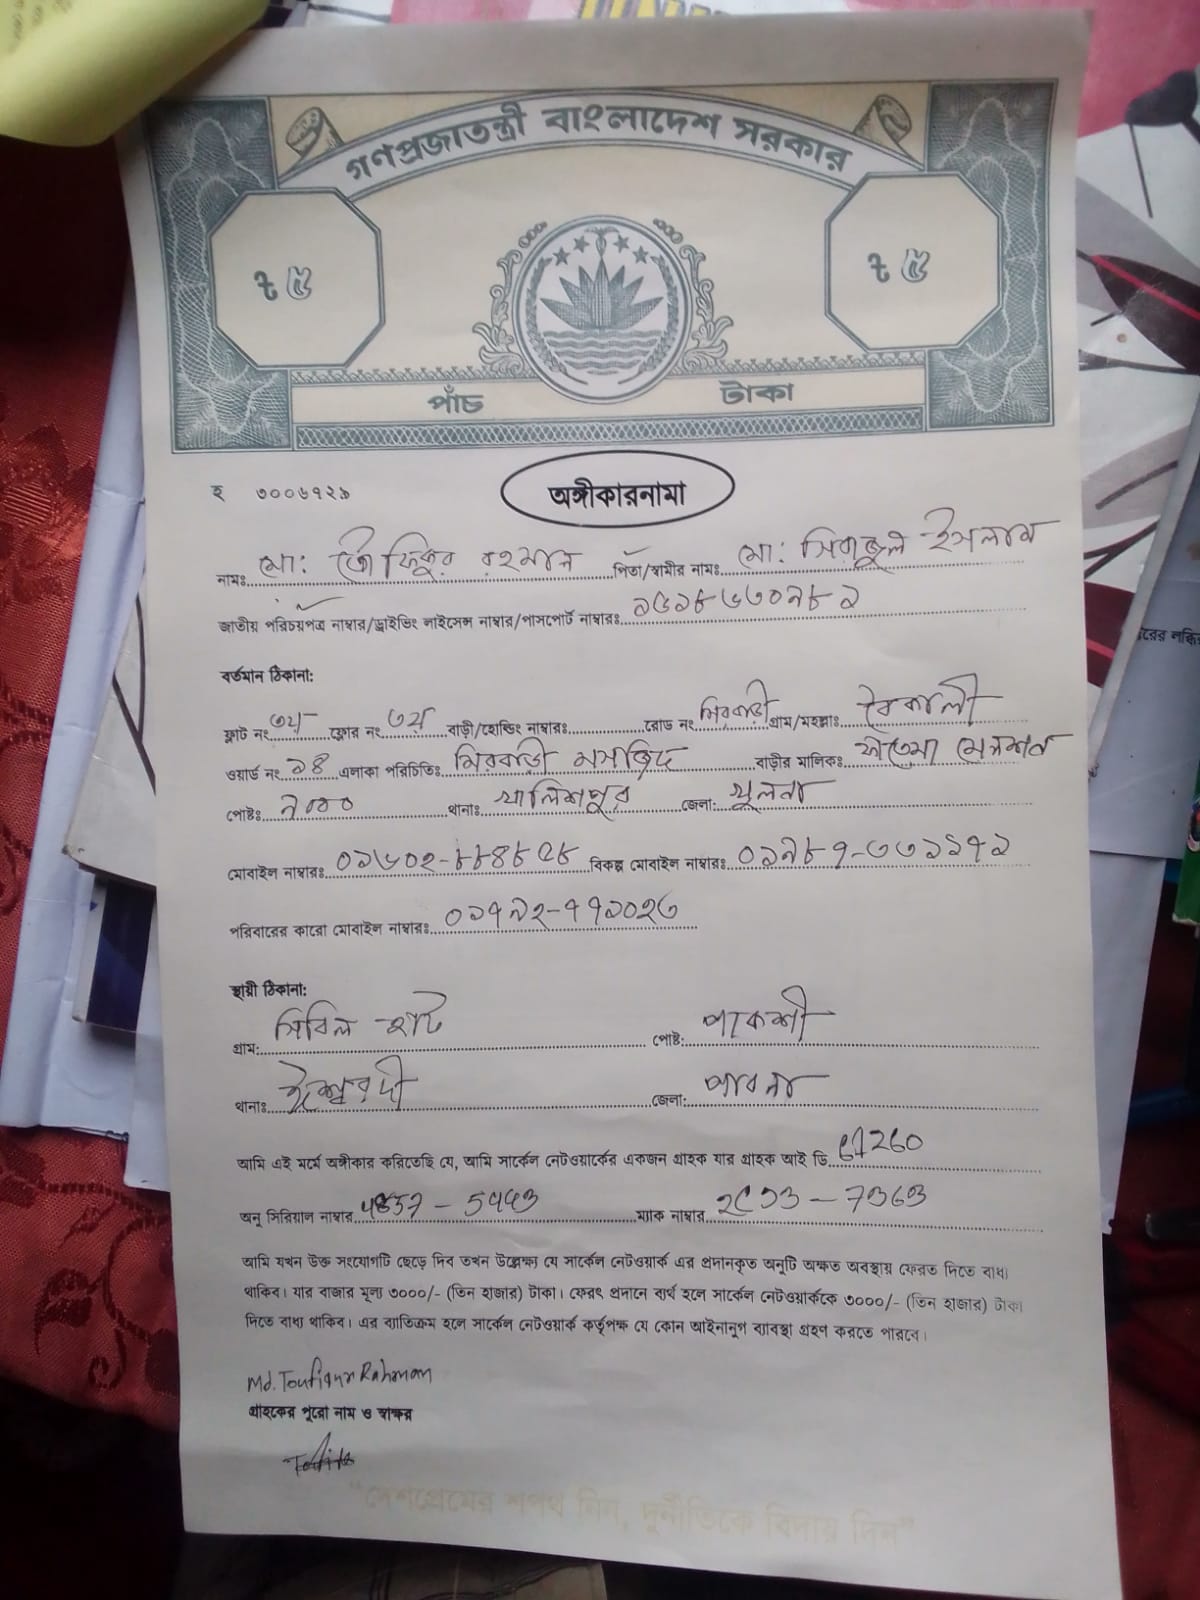 গণপ্রজাতন্ত্রী বাংলাদেশ সরকার
৳ ৫ ৳ ৫
পাঁচ টাকা
হ ৩০০৬৭২৯
অঙ্গীকারনামা
নামঃ মো: তৌফিকুর রহমান পিতা/স্বামীর নামঃ মো: সিরাজুল ইসলাম
জাতীয় পরিচয়পত্র নাম্বার/ড্রাইভিং লাইসেন্স নাম্বার/পাসপোর্ট নাম্বারঃ
বর্তমান ঠিকানা:
ফ্লাট নং ৩য় ফ্লোর নং ৩য় বাড়ী/হোল্ডিং নাম্বারঃ রোড নং মিরবাড়ী গ্রাম/মহল্লাঃ বৈকালী
ওয়ার্ড নং ১৪ এলাকা পরিচিতিঃ মিরবাড়ী মসজিদ বাড়ীর মালিকঃ ফাতেমা মেনশন
পোষ্টঃ ৯০০০ থানাঃ খালিশপুর জেলা: খুলনা
মোবাইল নাম্বারঃ ০১৬০২-৮৮৪৮৫৮ বিকল্প মোবাইল নাম্বারঃ
পরিবারের কারো মোবাইল নাম্বারঃ ০১৭৯২-৭৭১০২৩
স্থায়ী ঠিকানা:
গ্রাম: সিবিল হাট পোষ্ট: পাকশী
থানাঃ ঈশ্বরদী জেলা: পাবনা
আমি এই মর্মে অঙ্গীকার করিতেছি যে, আমি সার্কেল নেটওয়ার্কের একজন গ্রাহক যার গ্রাহক আই ডি
অনু সিরিয়াল নাম্বার ম্যাক নাম্বার
আমি যখন উক্ত সংযোগটি ছেড়ে দিব তখন উল্লেক্ষ্য যে সার্কেল নেটওয়ার্ক এর প্রদানকৃত অনুটি অক্ষত অবস্থায় ফেরত দিতে বাধ্য
থাকিব। যার বাজার মূল্য ৩০০০/- (তিন হাজার) টাকা। ফেরৎ প্রদানে ব্যর্থ হলে সার্কেল নেটওয়ার্ককে ৩০০০/- (তিন হাজার) টাকা
দিতে বাধ্য থাকিব। এর ব্যতিক্রম হলে সার্কেল নেটওয়ার্ক কর্তৃপক্ষ যে কোন আইনানুগ ব্যাবস্থা গ্রহণ করতে পারবে।
Md. Toufiqur Rahman
গ্রাহকের পুরো নাম ও স্বাক্ষর
"দেশপ্রেমের শপথ নিন, দুর্নীতিকে বিদায় দিন"